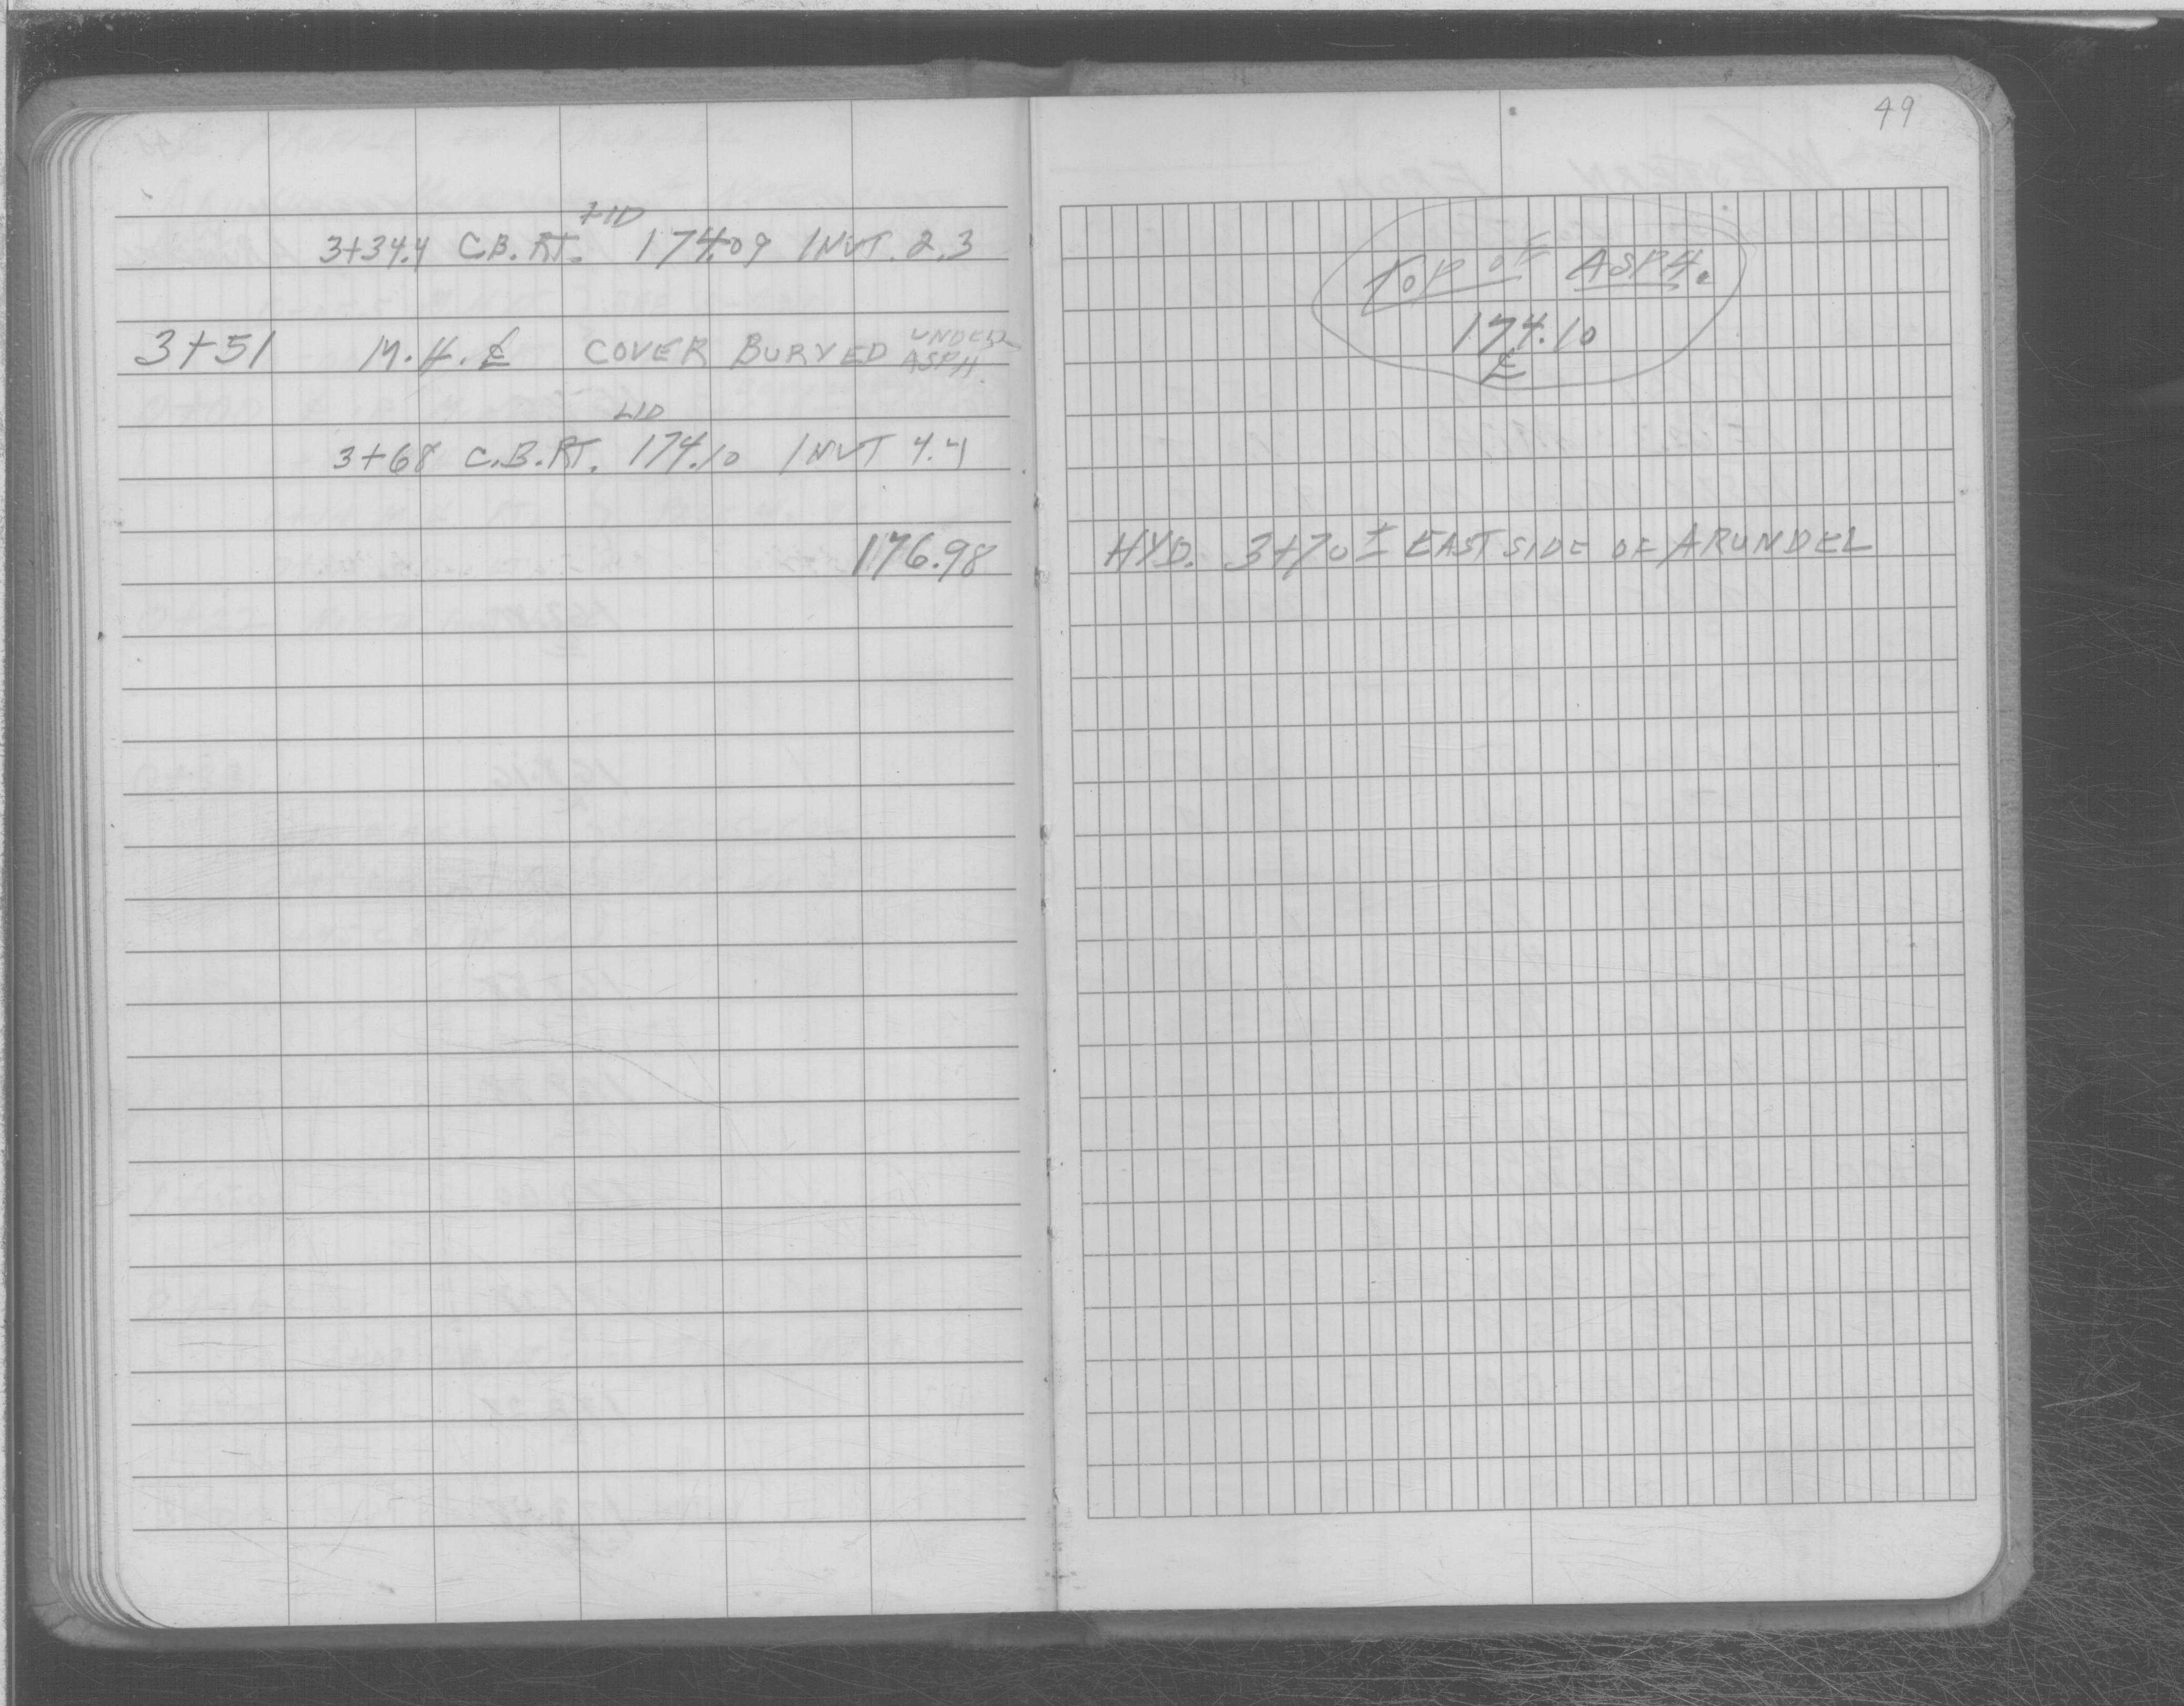 49
LID
3+34.4 C.B. RT. 174.09 INVT. 2.3
3+51 M.H. ℄ COVER BURYED UNDER
ASPH.
LID
3+68 C.B. RT. 174.10 INVT 4.4
176.98
TOP OF ASPH.
174.10
℄
HYD. 3+70± EAST SIDE OF ARUNDEL